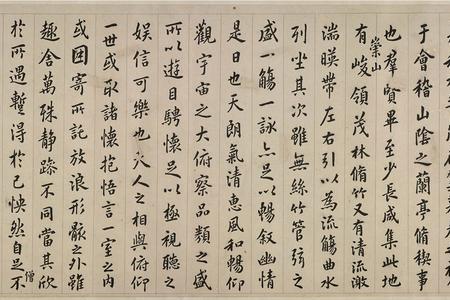 于會稽山陰之蘭亭脩稧事
也羣賢畢至少長咸集此地
有崇山峻領茂林脩竹又有清流激
湍暎帶左右引以為流觴曲水
列坐其次雖無絲竹管弦之
盛一觴一詠亦足以暢叙幽情
是日也天朗氣清惠風和暢仰
觀宇宙之大俯察品類之盛
所以遊目騁懷足以極視聽之
娛信可樂也夫人之相與俯仰
一世或取諸懷抱悟言一室之內
或因寄所託放浪形骸之外雖
趣舍萬殊靜躁不同當其欣
僧
於所遇蹔得於己怏然自足不